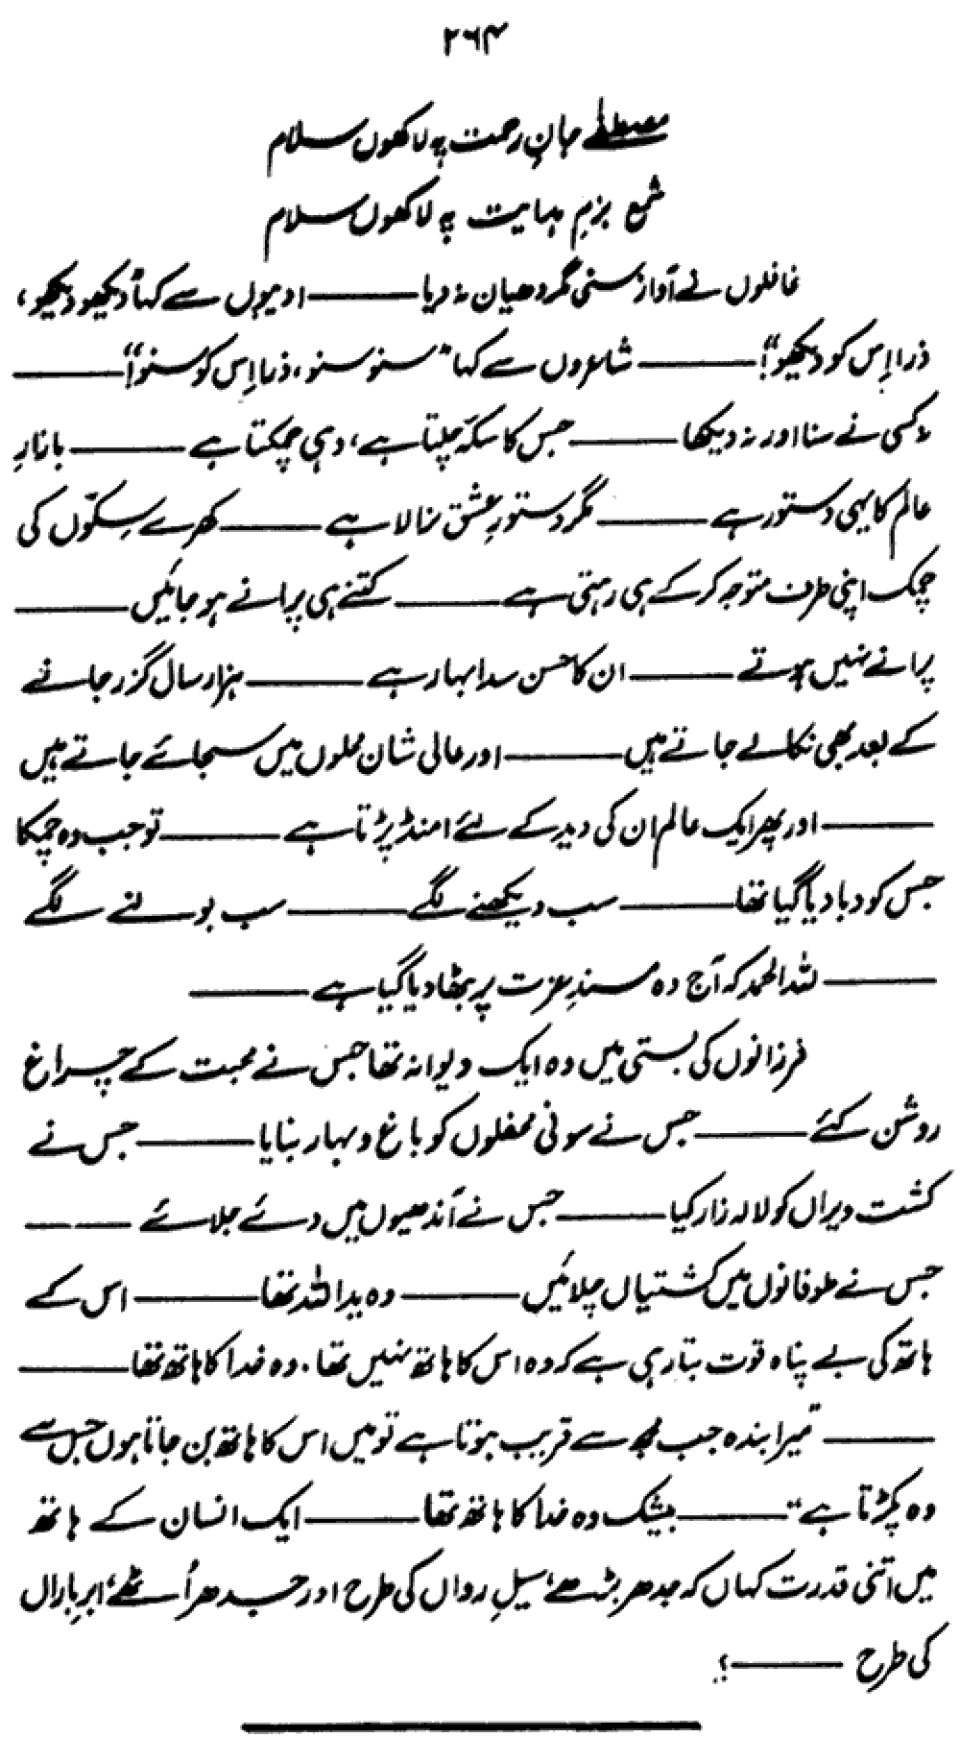 ۲۶۴
مصطفےٰ جانِ رحمت پہ لاکھوں سلام
شمع بزمِ ہدایت پہ لاکھوں سلام
غافلوں نے آواز سنی مگر دھیان نہ دیا ——— ادیبوں سے کہا "دیکھو دیکھو،
ذرا اِس کو دیکھو"! ——— شاعروں سے کہا "سنو سنو، ذرا اِس کو سنو"! ———
نہ کسی نے سنا اور نہ دیکھا ——— جس کا سکّہ چلتا ہے، وہی چمکتا ہے ——— بازارِ
عالم کا یہی دستور ہے ——— مگر دستورِ عشق نرالا ہے ——— کھرے سِکّوں کی
چمک اپنی طرف متوجہ کر کے ہی رہتی ہے ——— کتنے ہی پرانے ہو جائیں ———
پرانے نہیں ہوتے ——— ان کا حسن سدا بہار ہے ——— ہزار سال گزر جانے
کے بعد بھی نکالے جاتے ہیں ——— اور عالی شان محلوں میں سجائے جاتے ہیں
——— اور پھر ایک عالم ان کی دید کے لئے امنڈ پڑتا ہے ——— تو جب وہ چمکا
جس کو دبا دیا گیا تھا ——— سب دیکھنے لگے ——— سب بولنے لگے
——— للہ الحمد کہ آج وہ مسندِ عزت پر بٹھا دیا گیا ہے ———
فرزانوں کی بستی میں وہ ایک دیوانہ تھا جس نے محبت کے چراغ
روشن کئے ——— جس نے سونی محفلوں کو باغ و بہار بنایا ——— جس نے
کشت ویراں کو لالہ زار کیا ——— جس نے آندھیوں میں دئے جلائے ———
جس نے طوفانوں میں کشتیاں چلائیں ——— وہ ید اللہ تھا ——— اس کے
ہاتھ کی بے پناہ قوت بتا رہی ہے کہ وہ اس کا ہاتھ نہیں تھا۔ وہ خدا کا ہاتھ تھا ———
——— "میرا بندہ جب مجھ سے قریب ہوتا ہے تو میں اس کا ہاتھ بن جاتا ہوں جس سے
وہ پکڑتا ہے" ——— بیشک وہ خدا کا ہاتھ تھا ——— ایک انسان کے ہاتھ
میں اتنی قدرت کہاں کہ جدھر بڑھے، سیلِ رواں کی طرح اور جدھر اُٹھے، ابرِ باراں
کی طرح ———؟